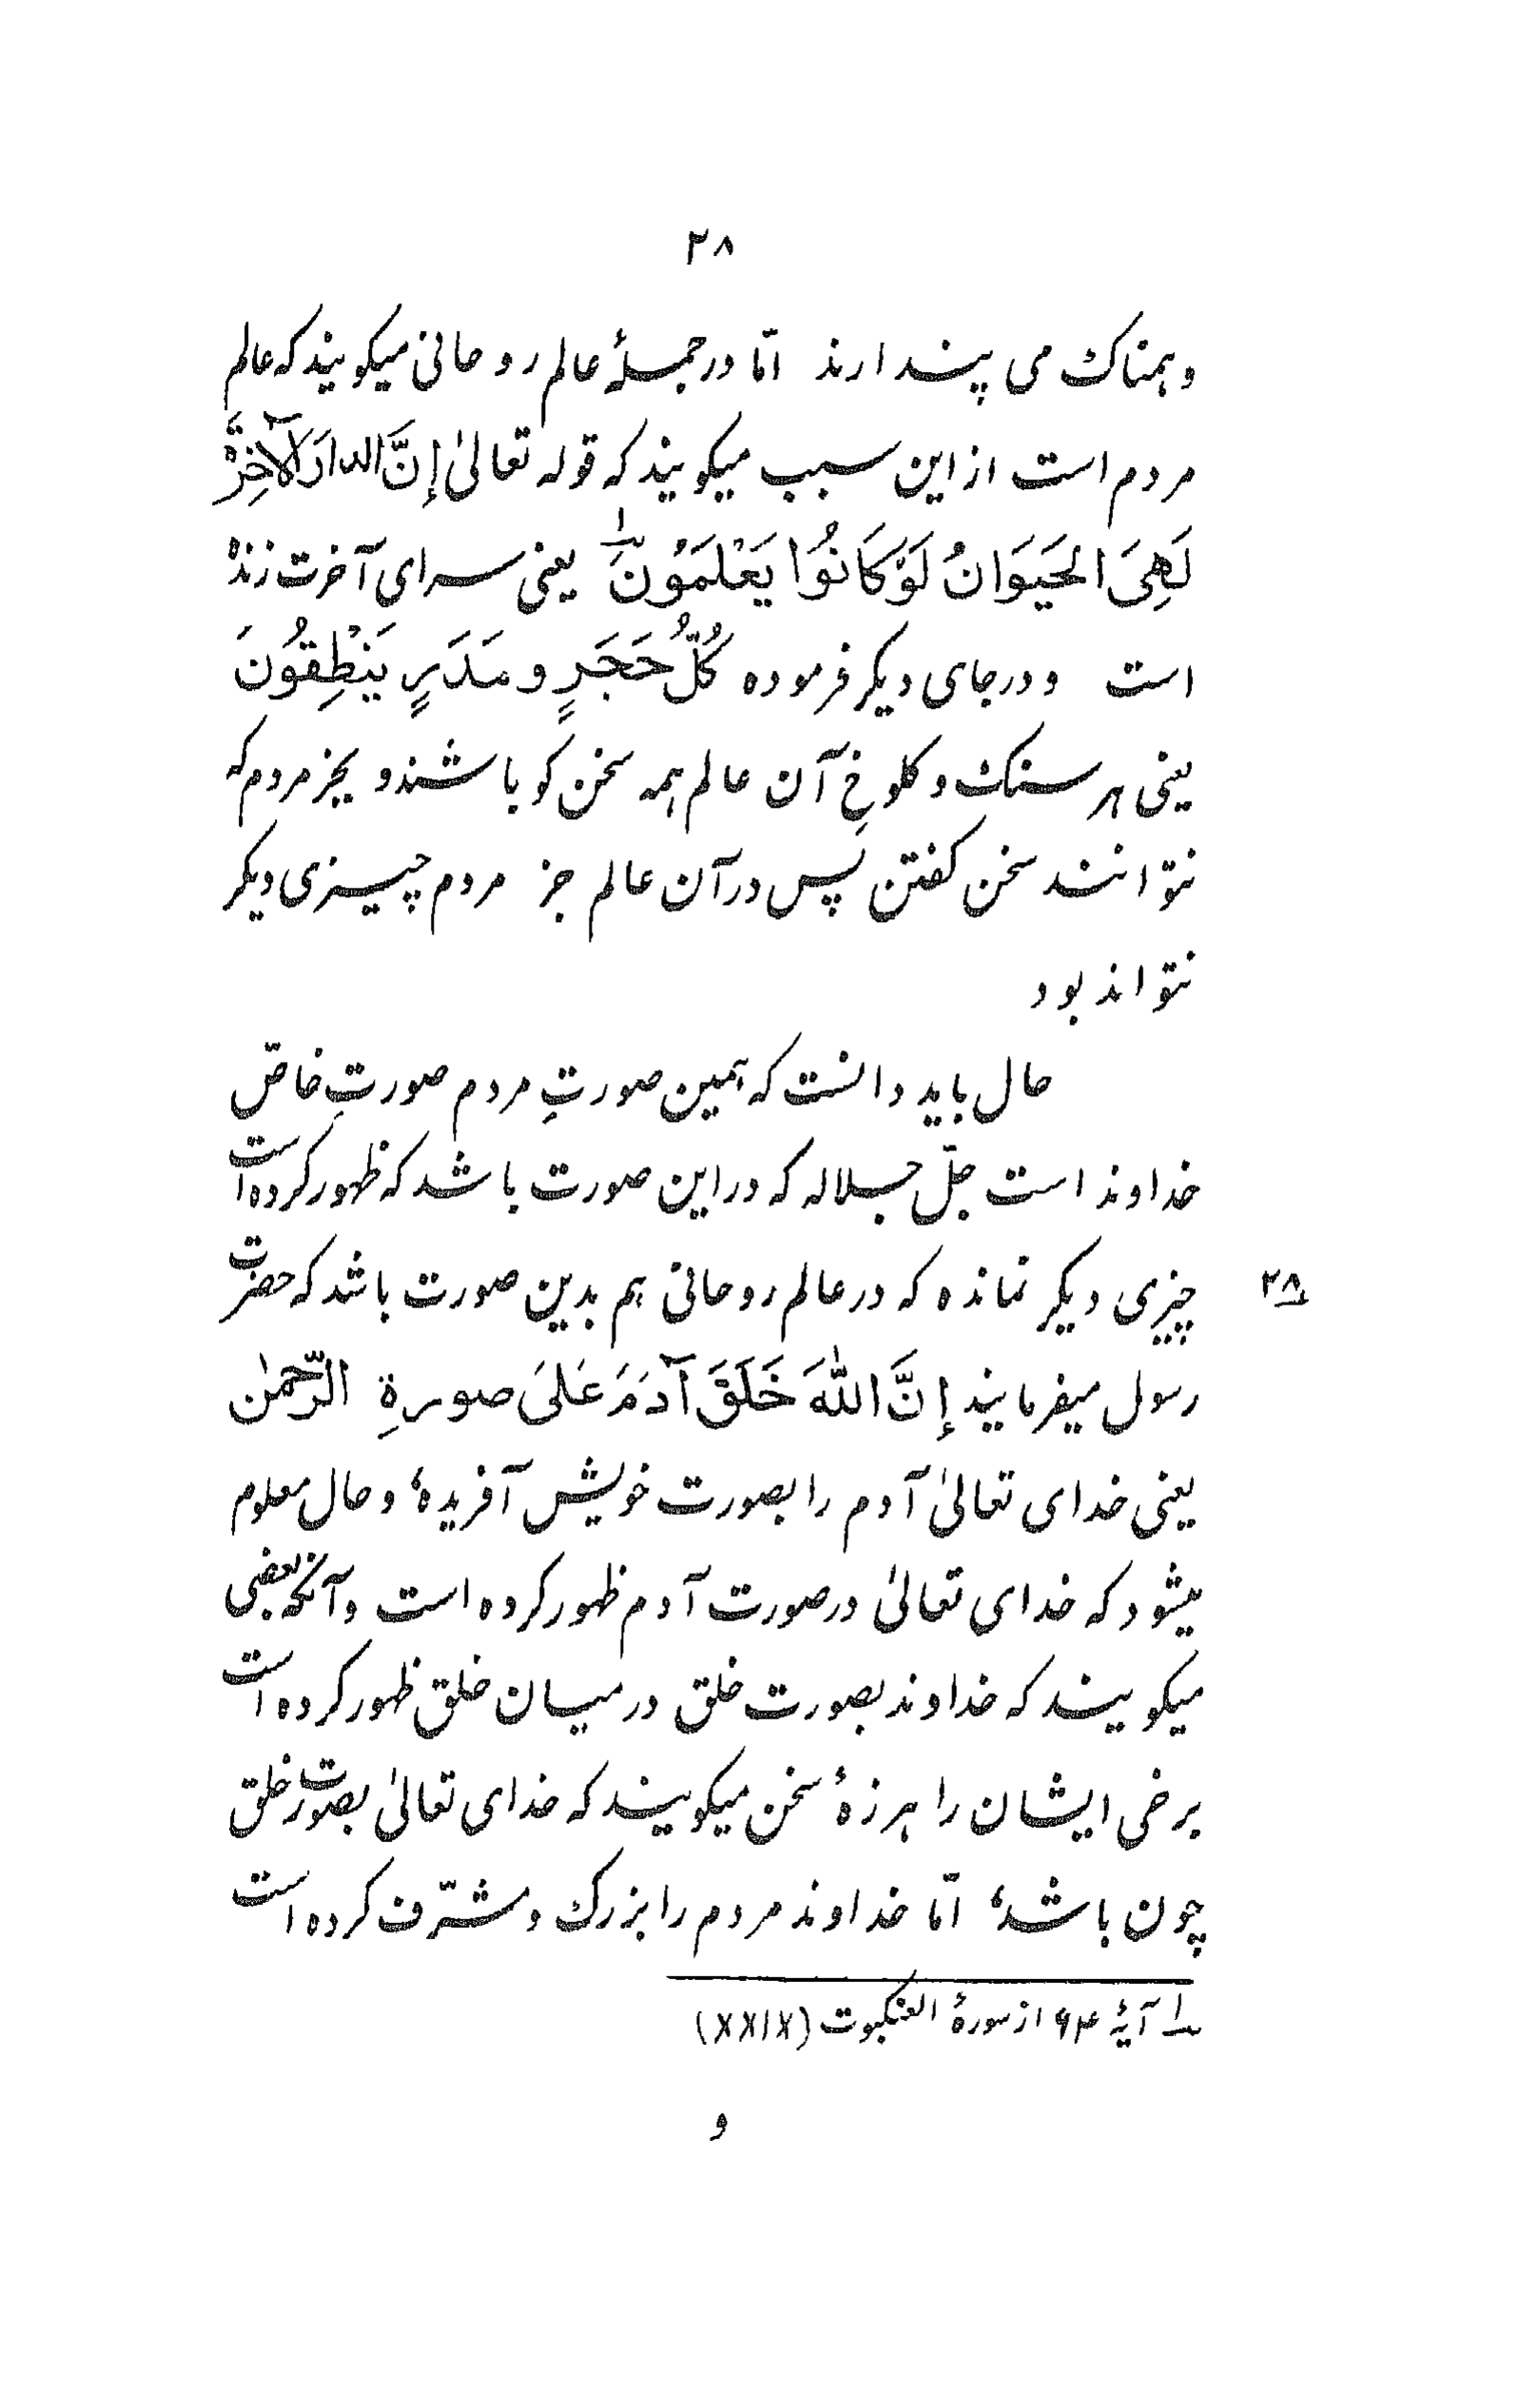 ۲۸
وهمناک می پندارند امّا در جملهٔ عالم روحانی میکویند که عالم
مردم است از این سبب میکویند که قوله تعالیٰ إِنَّ الدارَ الآخِرَةَ
لَهِیَ الحَیَوَانُ لَوْ کَانُوا یَعْلَمُوْنَ ۱ یعنی سرای آخرت زندهٔ
است و در جای دیکر فرموده کُلُّ حَجَرٍ و مَدَرٍ یَنْطِقُونَ
یعنی هر سنک و کلوخِ آن عالم همه سخن کو باشند و بجز مردم که
نتوانند سخن کفتن پس در آن عالم جز مردم چیزی دیکر
نتواند بود
حال باید دانست که همین صورتِ مردم صورتِ خاصّ
خداوند است جلّ جلاله که در این صورت باشد که ظهور کرده است
چیزی دیکر نمانده که در عالم روحانی هم بدین صورت باشد که حضرت
۲۸
رسول میفرمایند إِنَّ اللهَ خَلَقَ آدَمَ عَلیَ صورةِ الرّحمٰن
یعنی خدای تعالیٰ آدم را بصورت خویش آفریدهٔ و حال معلوم
میشود که خدای تعالیٰ در صورت آدم ظهور کرده است و آنکه بعضی
میکویند که خداوند بصورت خلق در میان خلق ظهور کرده است
برخی ایشان را هرزهٔ سخن میکویند که خدای تعالیٰ بصورت خلق
چون باشد، امّا خداوند مردم را بزرک و مشرّف کرده است
۱ آیهٔ ۶۴ از سورهٔ العنکبوت (XXIX)
و